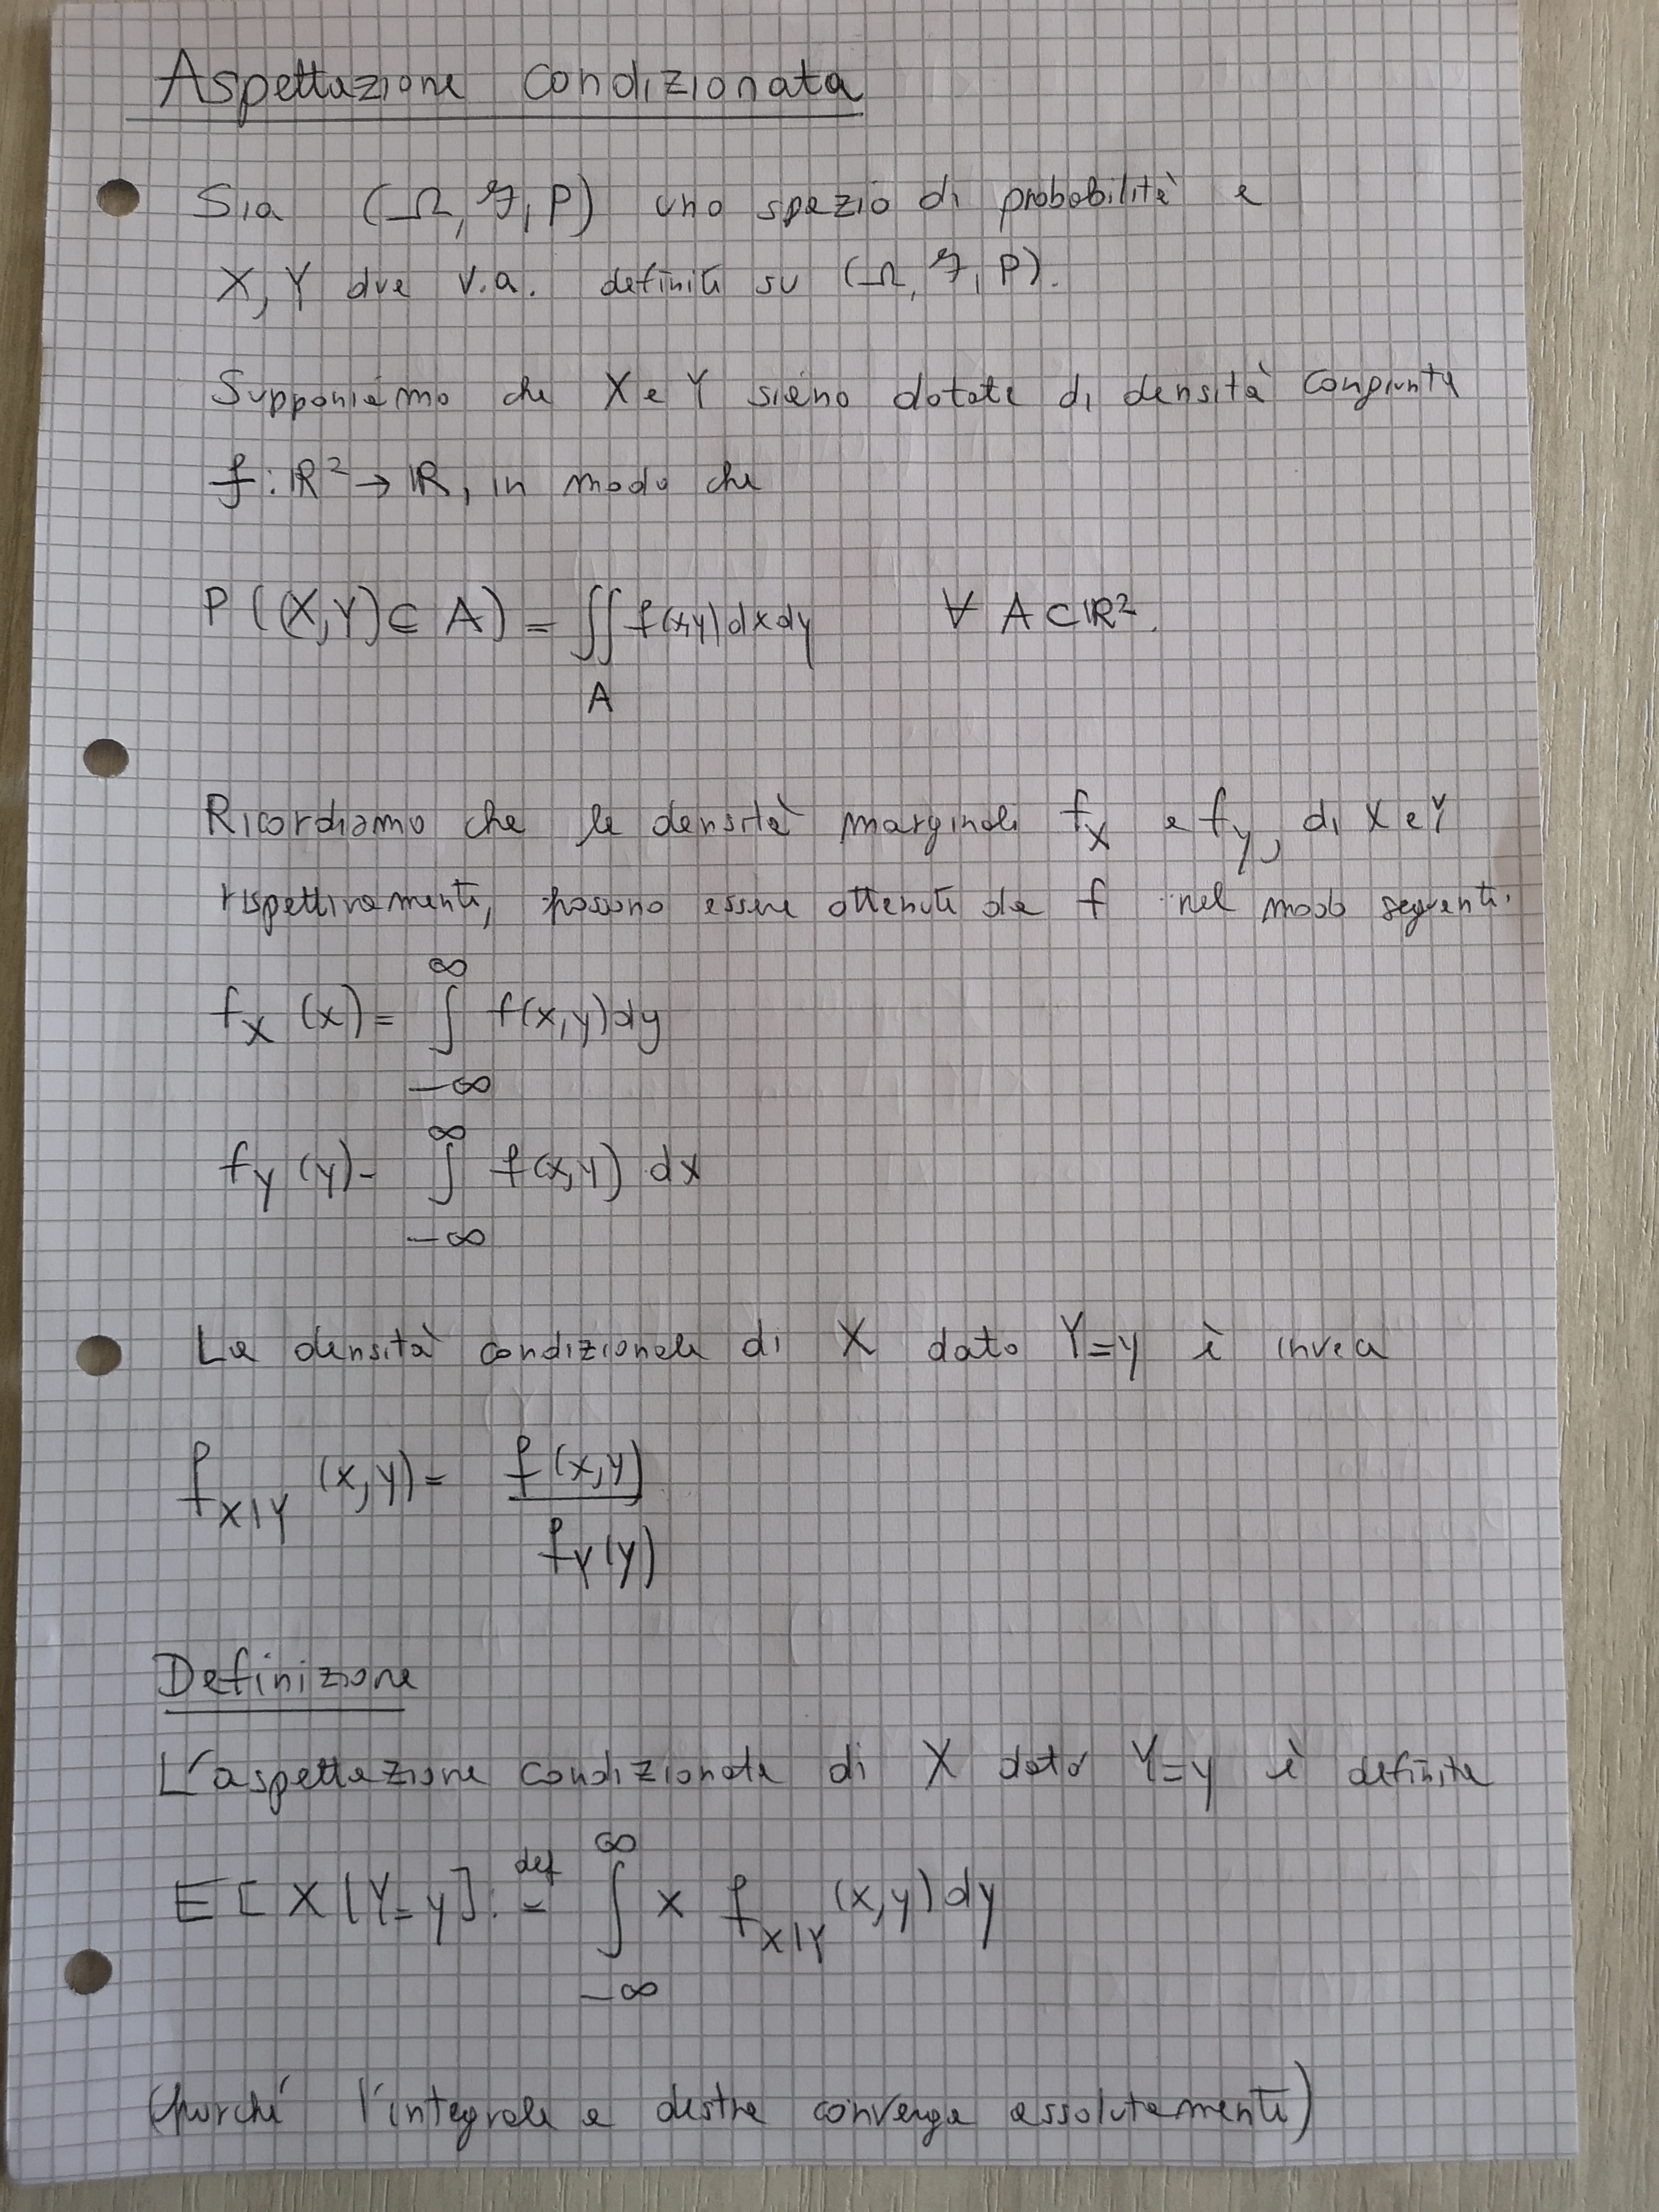 Aspettazione condizionata
Sia (Ω, ℱ, P) uno spazio di probabilità e
X, Y due v.a. definite su (Ω, ℱ, P).
Supponiamo che X e Y siano dotate di densità congiunta
f: ℝ² → ℝ, in modo che
P((X,Y) ∈ A) = ∬_A f(x,y) dx dy ∀ A ⊂ ℝ².
Ricordiamo che le densità marginali f_X e f_Y, di X e Y
rispettivamente, possono essere ottenute da f nel modo seguente.
f_X (x) = ∫_{-∞}^{∞} f(x,y) dy
f_Y (y) = ∫_{-∞}^{∞} f(x,y) dx
La densità condizionale di X dato Y=y è invece
f_{X|Y} (x,y) = f(x,y) / f_Y(y)
Definizione
L'aspettazione condizionata di X dato Y=y è definita
E[X|Y=y] :=^{def} ∫_{-∞}^{∞} x f_{X|Y} (x,y) dy
(purché l'integrale a destra converga assolutamente)